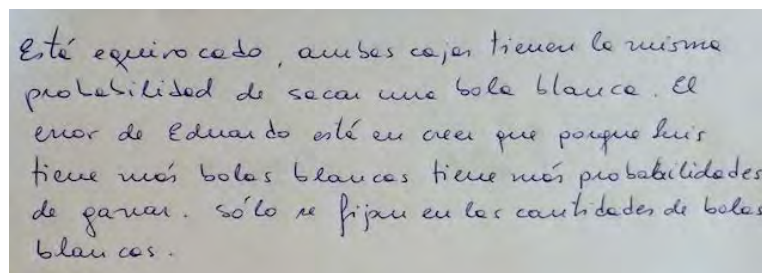 Está equivocado, ambas cajas tienen la misma
probabilidad de sacar una bola blanca. El
error de Eduardo está en creer que porque Luis
tiene más bolas blancas tiene más probabilidades
de ganar. Sólo se fijan en las cantidades de bolas
blancas.